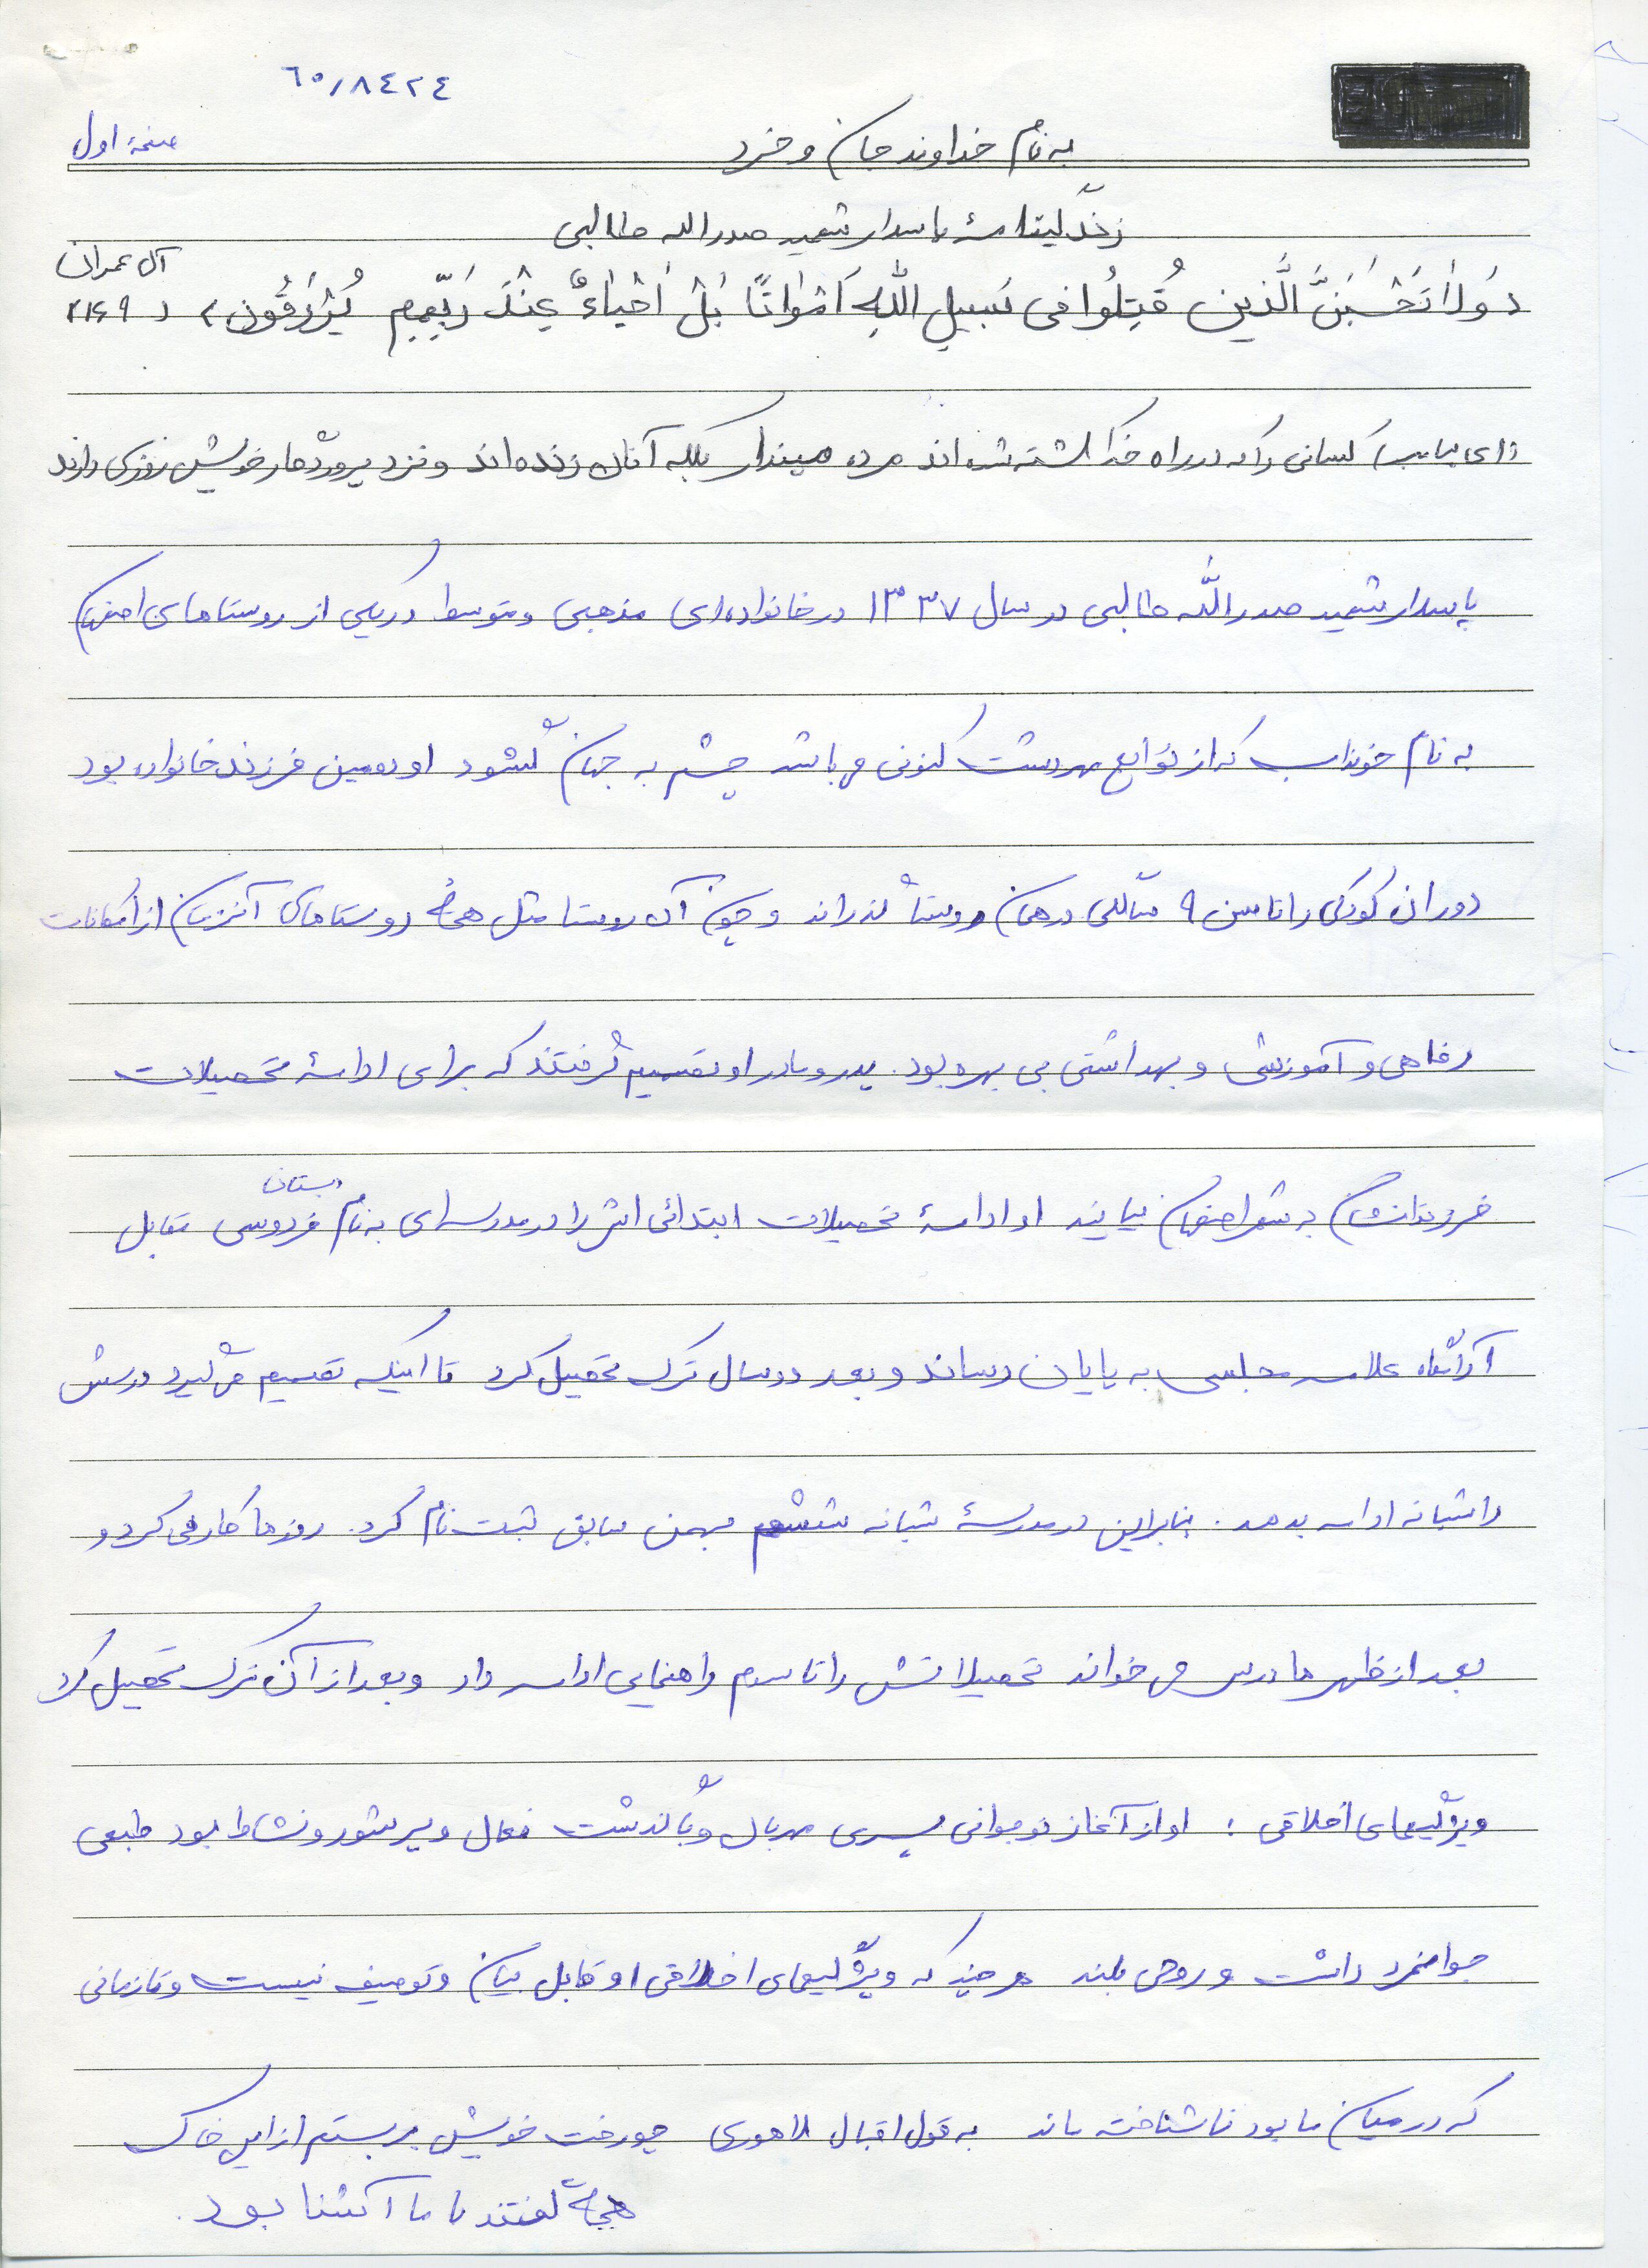 ٦٠/٨٤٢٤
صفحهٔ اول
به نام خداوند جان و خرد
زندگینامهٔ پاسدار شهید صدرالله طالبی
«وَلا تَحْسَبَنَّ الَّذینَ قُتِلُوا فی سَبیلِ اللهِ اَمْواتًا بَلْ اَحْیاءٌ عِنْدَ رَبِّهِم یُرْزَقُون» (آل عمران ۱۶۹)
کسانی را که در راه خدا کشته شده‌اند مرده مپندار بلکه آنان زنده‌اند و نزد پروردگار خویش روزی دارند
پاسدار شهید صدرالله طالبی در سال ۱۳۳۷ در خانواده‌ای مذهبی و متوسط در یکی از روستاهای اصفهان
به نام خونداب که از توابع مهردشت کنونی می‌باشد چشم به جهان گشود او دومین فرزند خانواده بود
دوران کودکی را تا سن ۹ سالگی در همان روستا گذراند و چون آن روستا مثل همهٔ روستاهای آنزمان از امکانات
رفاهی و آموزشی و بهداشتی بی بهره بود. پدر و مادر او تصمیم گرفتند که برای ادامهٔ تحصیلات
فرزندانشان به شهر اصفهان بیایند او ادامهٔ تحصیلات ابتدائی اش را در مدرسه‌ای به نام دبستان فردوسی مقابل
آرامگاه علامه مجلسی به پایان رساند و بعد دو سال ترک تحصیل کرد تا اینکه تصمیم می‌گیرد درسش
را شبانه ادامه بدهد. بنابراین در مدرسهٔ شبانه ششم بهمن سابق ثبت نام کرد. روزها کار می‌کرد و
بعد از ظهرها درس می‌خواند تحصیلاتش را تا سوم راهنمایی ادامه داد و بعد از آن ترک تحصیل کرد
ویژگیهای اخلاقی : او از آغاز نوجوانی پسری مهربان و باگذشت فعال و پرشور و نشاط بود طبعی
جوانمرد داشت و روحی بلند هر چند که ویژگیهای اخلاقی او قابل بیان و توصیف نیست و تا زمانی
که در میان ما بود ناشناخته ماند به قول اقبال لاهوری چو رخت خویش بر بستم از این خاک
همه گفتند با ما آشنا بود.